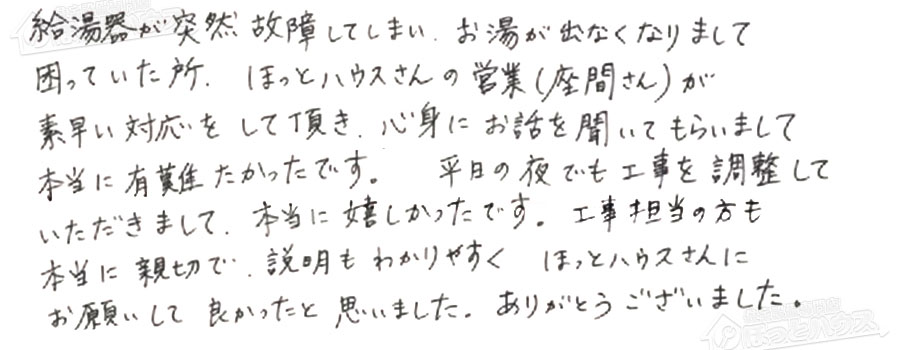 給湯器が突然故障してしまい、お湯が出なくなりまして
困っていた所、ほっとハウスさんの営業(座間さん)が
素早い対応をして頂き、心身にお話を聞いてもらいまして
本当に有難たかったです。 平日の夜でも工事を調整して
いただきまして、本当に嬉しかったです。工事担当の方も
本当に親切で、説明もわかりやすく ほっとハウスさんに
お願いして良かったと思いました。ありがとうございました。
ほっとハウス